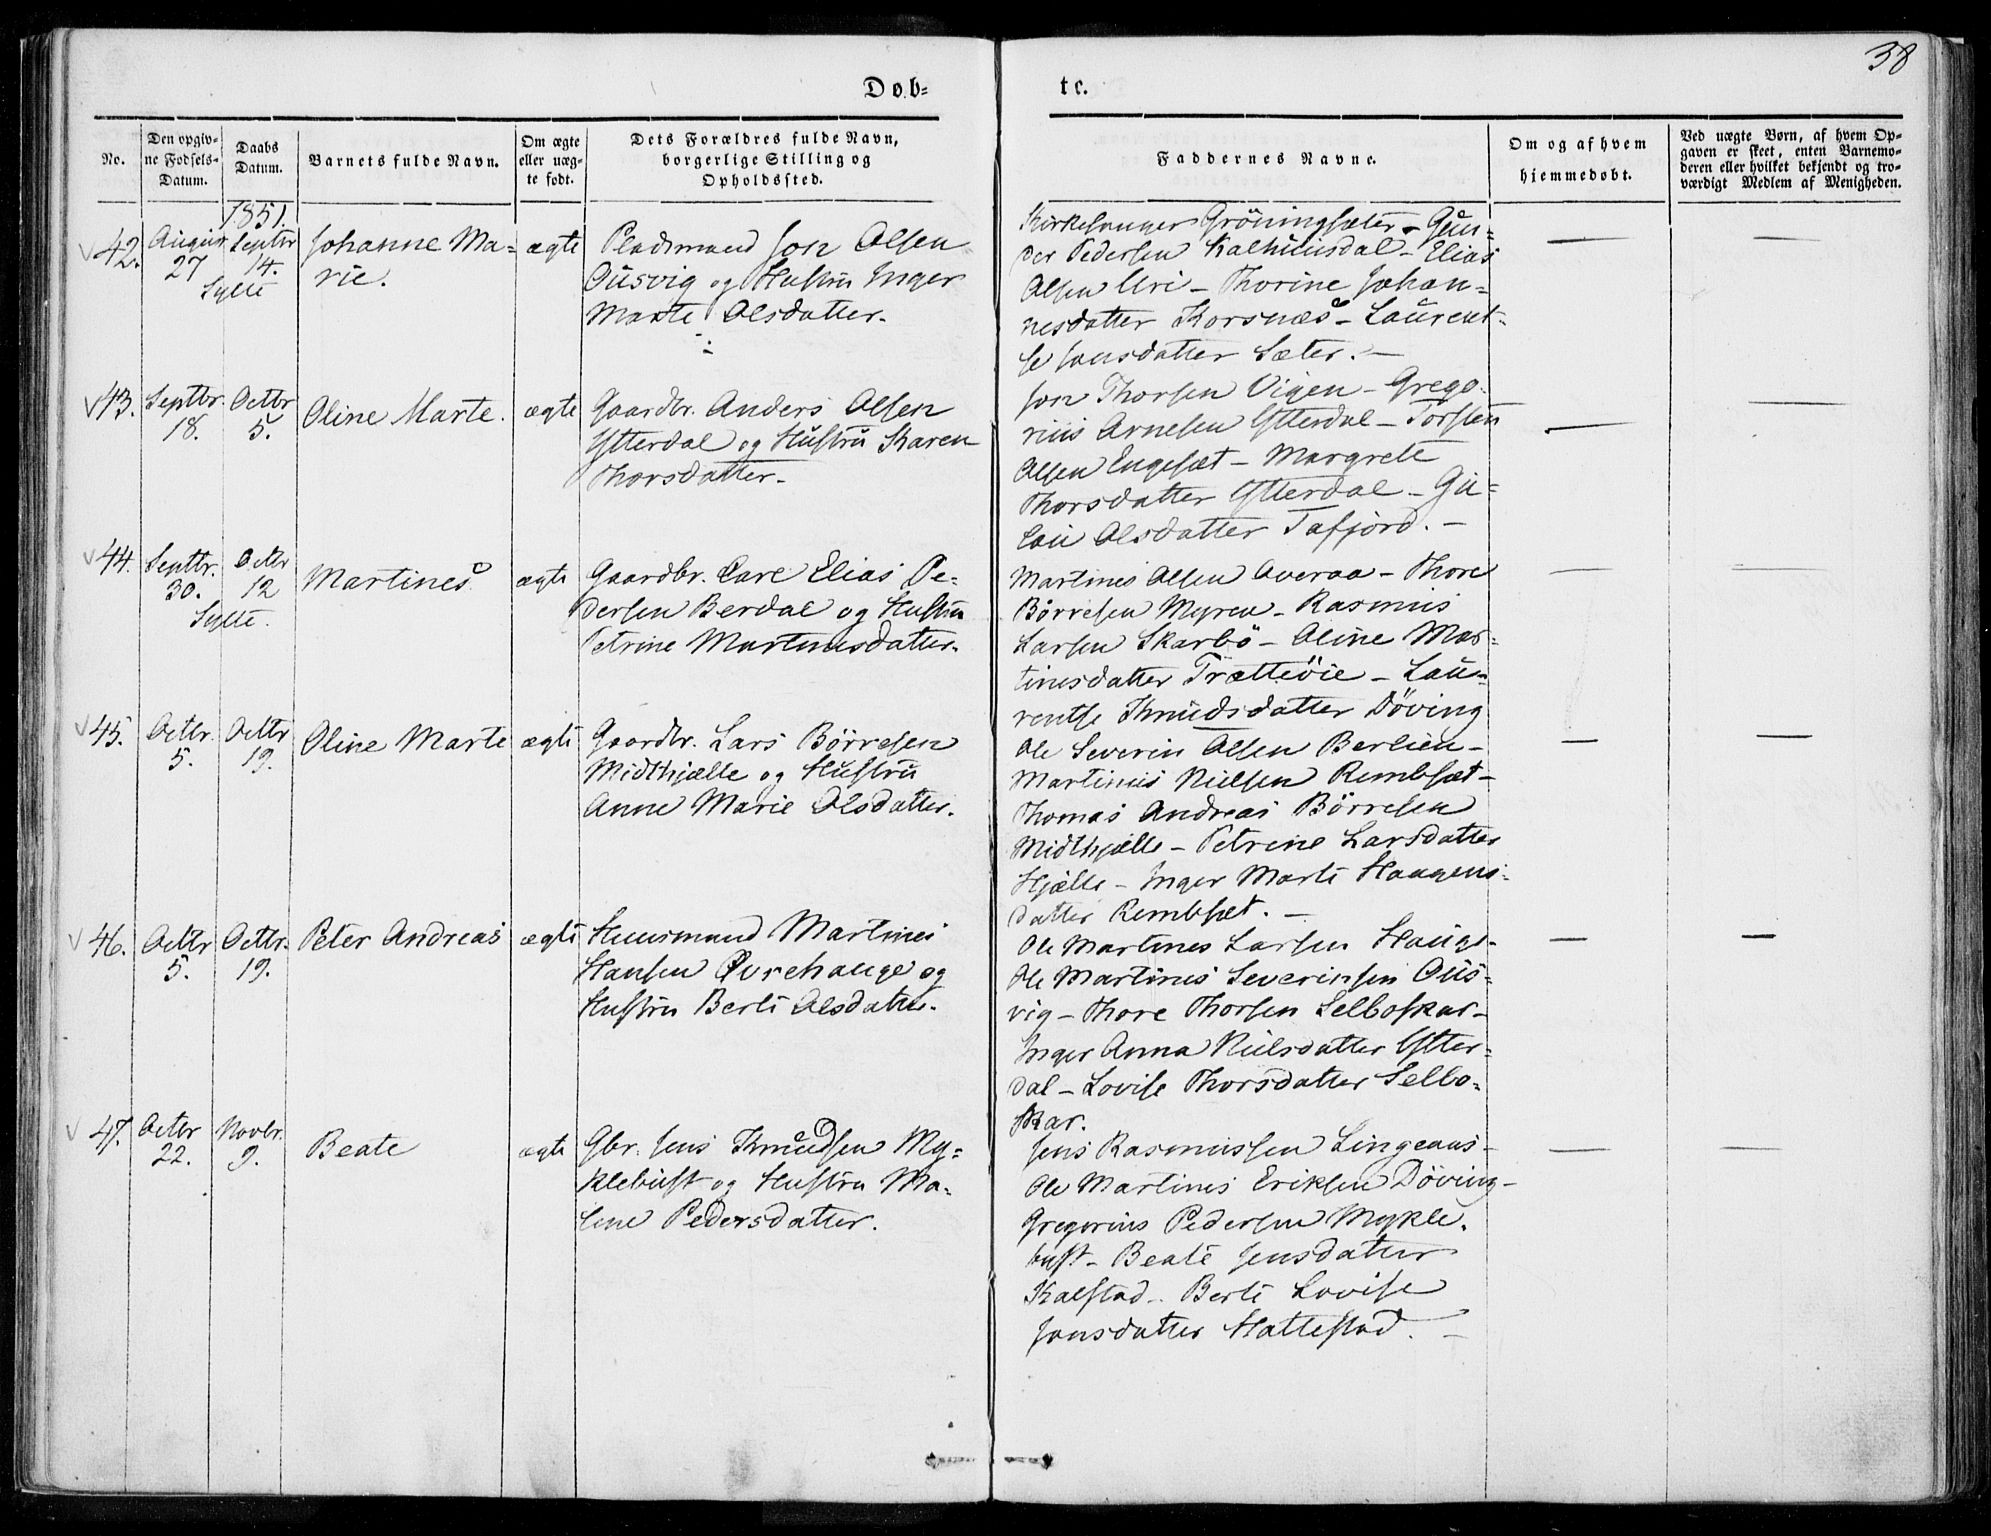 38
Døb=
te.
No.
Den opgiv-
ne Fødsels-
Datum.
Daabs
Datum.
Barnets fulde Navn.
Om ægte
eller uæg-
te født.
Dets Forældres fulde Navn,
borgerlige Stilling og
Opholdssted.
Faddernes Navne.
Om og af hvem
hjemmedøbt.
Ved uægte Børn, af hvem Op-
gaven er skeet, enten Barnemo-
deren eller hvilket bekjendt og tro-
værdigt Medlem af Menigheden.
1851.
42.
August
27
Septbr
14.
Sylte
Johanne Ma=
rie.
ægte
Pladsmand Jon Olsen
Ousvig og Hustru Inger
Marte Olsdatter.
Kirkesanger Gröningsæter - Gun=
der Pedersen Kalhuusdal - Elias
Olsen Uri - Thorine Johan=
nesdatter Korsnæs - Laurent=
se Jonsdatter Sæter. -
43.
Septbr.
18.
Octbr
5.
Oline Marte.
ægte
Gaardbr. Anders Olsen
Ytterdal og Hustru Karen
Thorsdatter.
Jon Thorsen Vigen - Grego=
rius Arnesen Ytterdal - Torsten
Olsen Engeset - Margrete
Thorsdatter Ytterdal - Gu=
lou Olsdatter Tafjord. -
44.
Septbr.
30.
Octbr
12
Sylte.
Martinus
ægte
Gaardbr. Carl Elias Pe=
dersen Berdal og Hustru
Petrine Martinusdatter.
Martinus Olsen Overaa - Thore
Börresen Myren - Rasmus
Larsen Skarbö - Oline Mar=
tinusdatter Trætteöie - Lau=
rentse Knudsdatter Döving
45.
Octbr.
5.
Octbr
19.
Oline Marte
ægte
Gaardbr. Lars Börresen
Midthjælle og Hustru
Anne Marie Olsdatter.
Ole Severin Olsen Berlien -
Martinus Nielsen Rembsæt -
Thomas Andreas Börresen
Midthjælle - Petrine Larsdatter
Hjælle - Inger Marte Haagens=
datter Rembsæt. -
46.
Octbr
5.
Octbr.
19.
Peter Andreas
ægte
Huusmand Martinus
Hansen Øvrehauge og
Hustru Berte Olsdatter.
Ole Martinus Larsen Hauge -
Ole Martinus Severinsen Ous=
vig - Thore Thorsen Selboskar -
Inger Anna Nielsdatter Ytter=
dal - Lovise Thorsdatter Selbo=
skar.
47.
Octbr
22.
Novbr.
9.
Beate
ægte
Gbr. Jens Knudsen My=
klebust og Hustru Ma=
lene Pedersdatter.
Jens Rasmussen Lingeaas -
Ole Martinus Eriksen Döving -
Gregorius Pedersen Mykle=
bust - Beate Jensdatter
Kalstad - Berte Lovise
Jonsdatter Hattestad. -